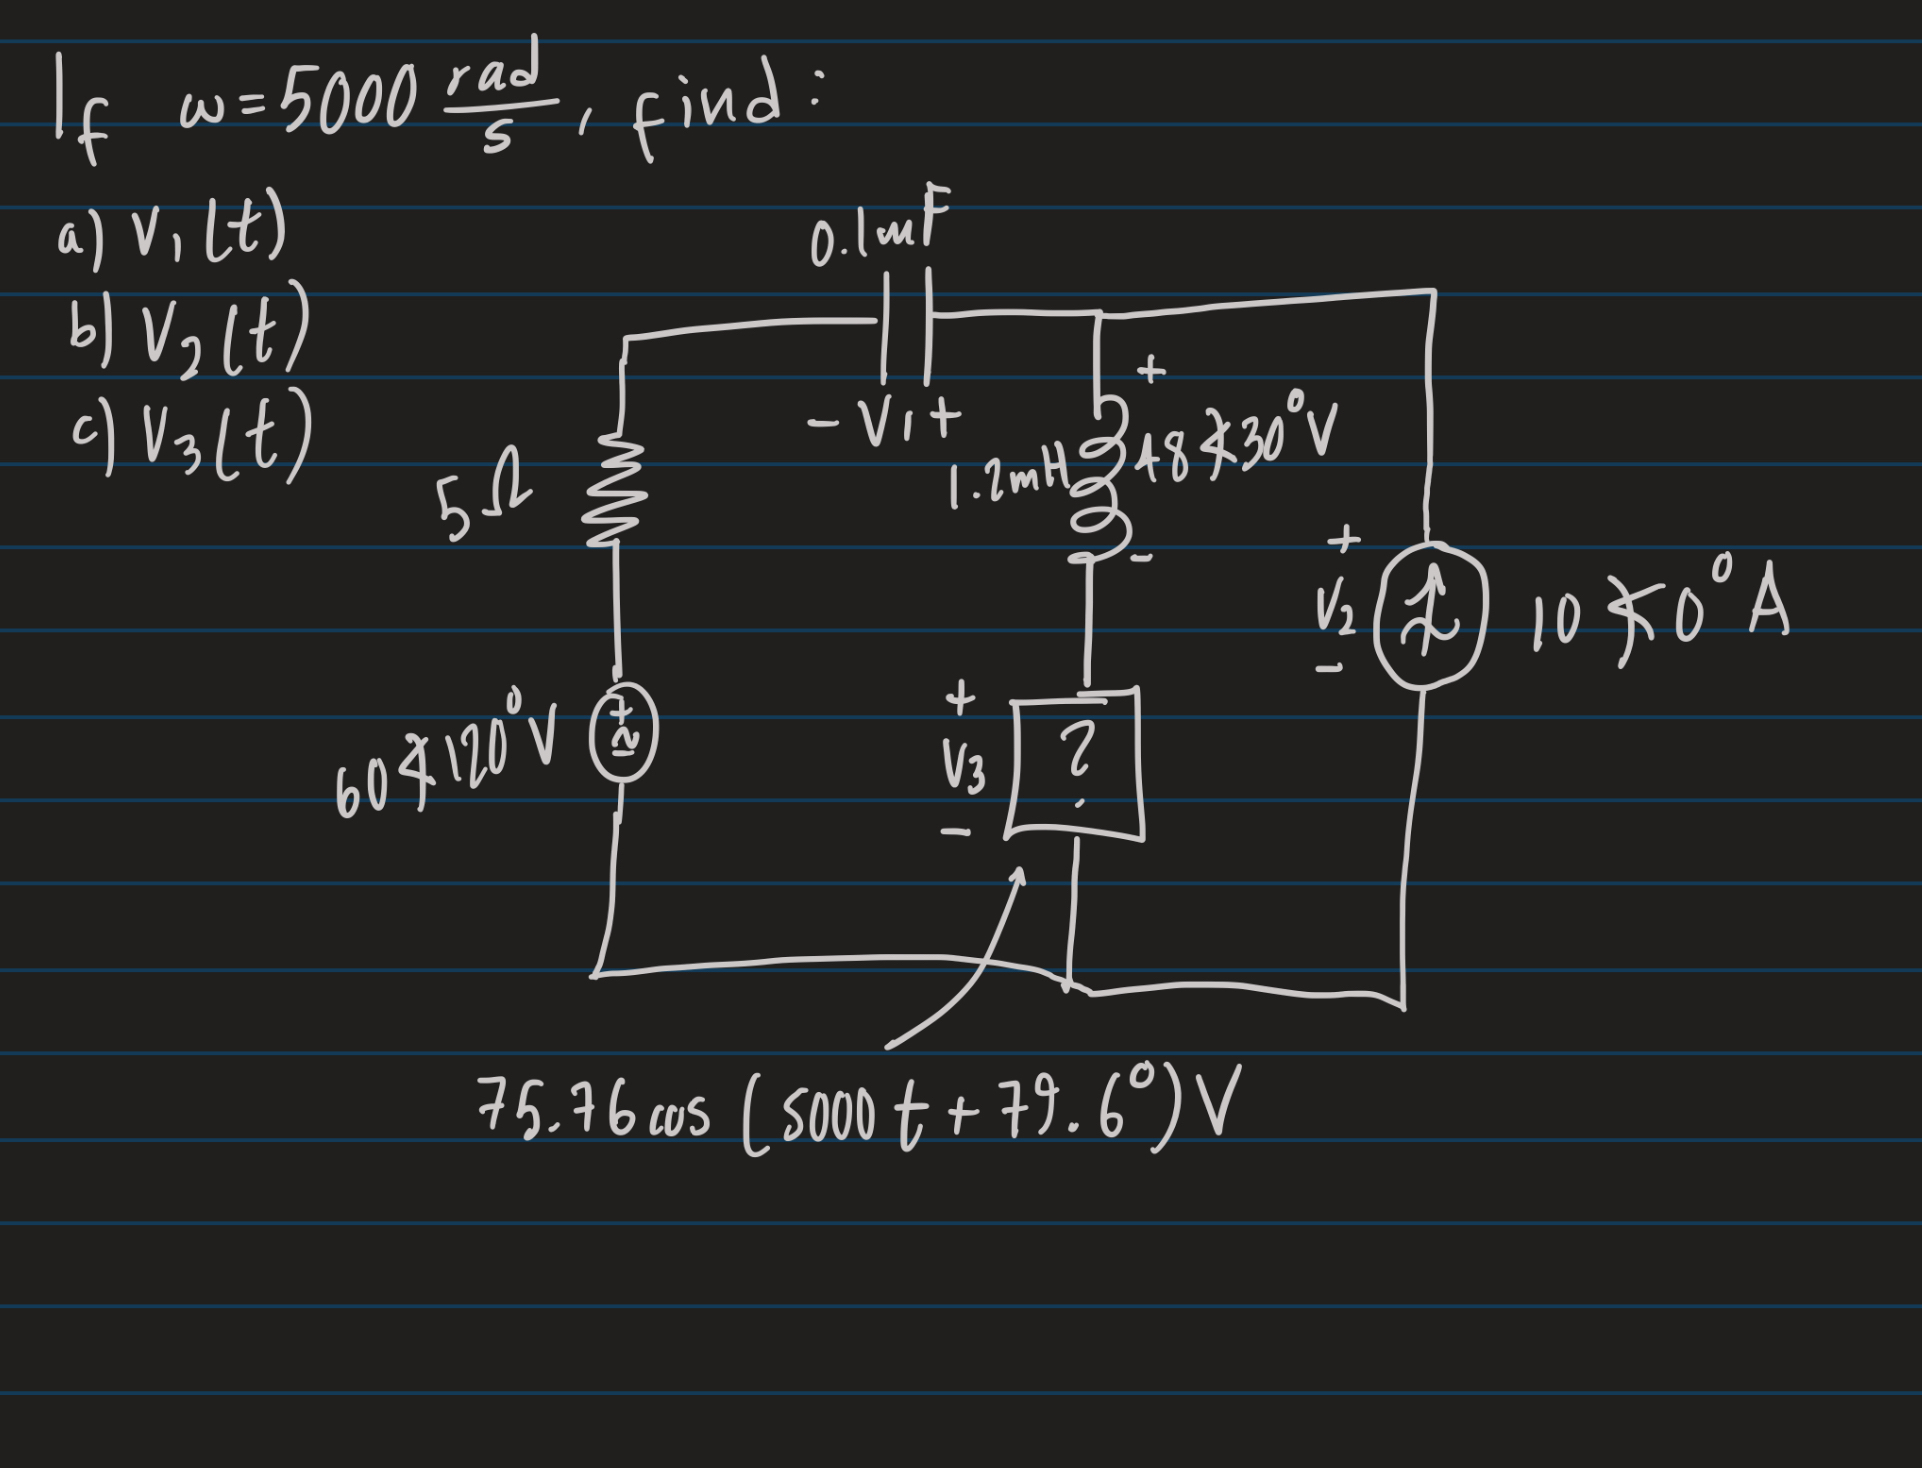 If ω=5000 rad/s, find:
a) V₁(t)
b) V₂(t)
c) V₃(t)
0.1mF
- V₁ +
+
1.2mH
48∡30°V
-
5Ω
+
V₂
-
10∡0°A
60∡120°V
+
-
+
V₃
-
?
75.76cos(5000t+79.6°)V